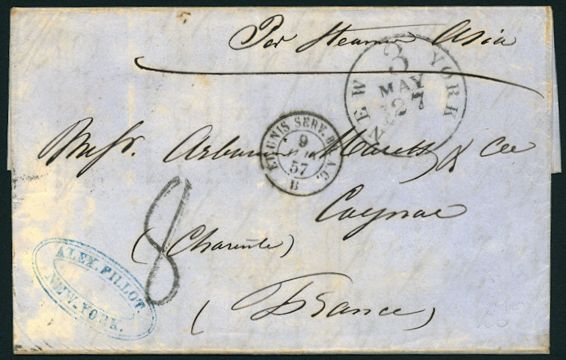 Per Steamer Asia
NEW YORK
3
MAY
27
ET. UNIS SERV. BR. A.C.
9
JUIN
57
B
Messr. Arbouin Marett & Cie
Cognac
(Charente)
(France)
8
ALEX. PILLOT
NEW-YORK.